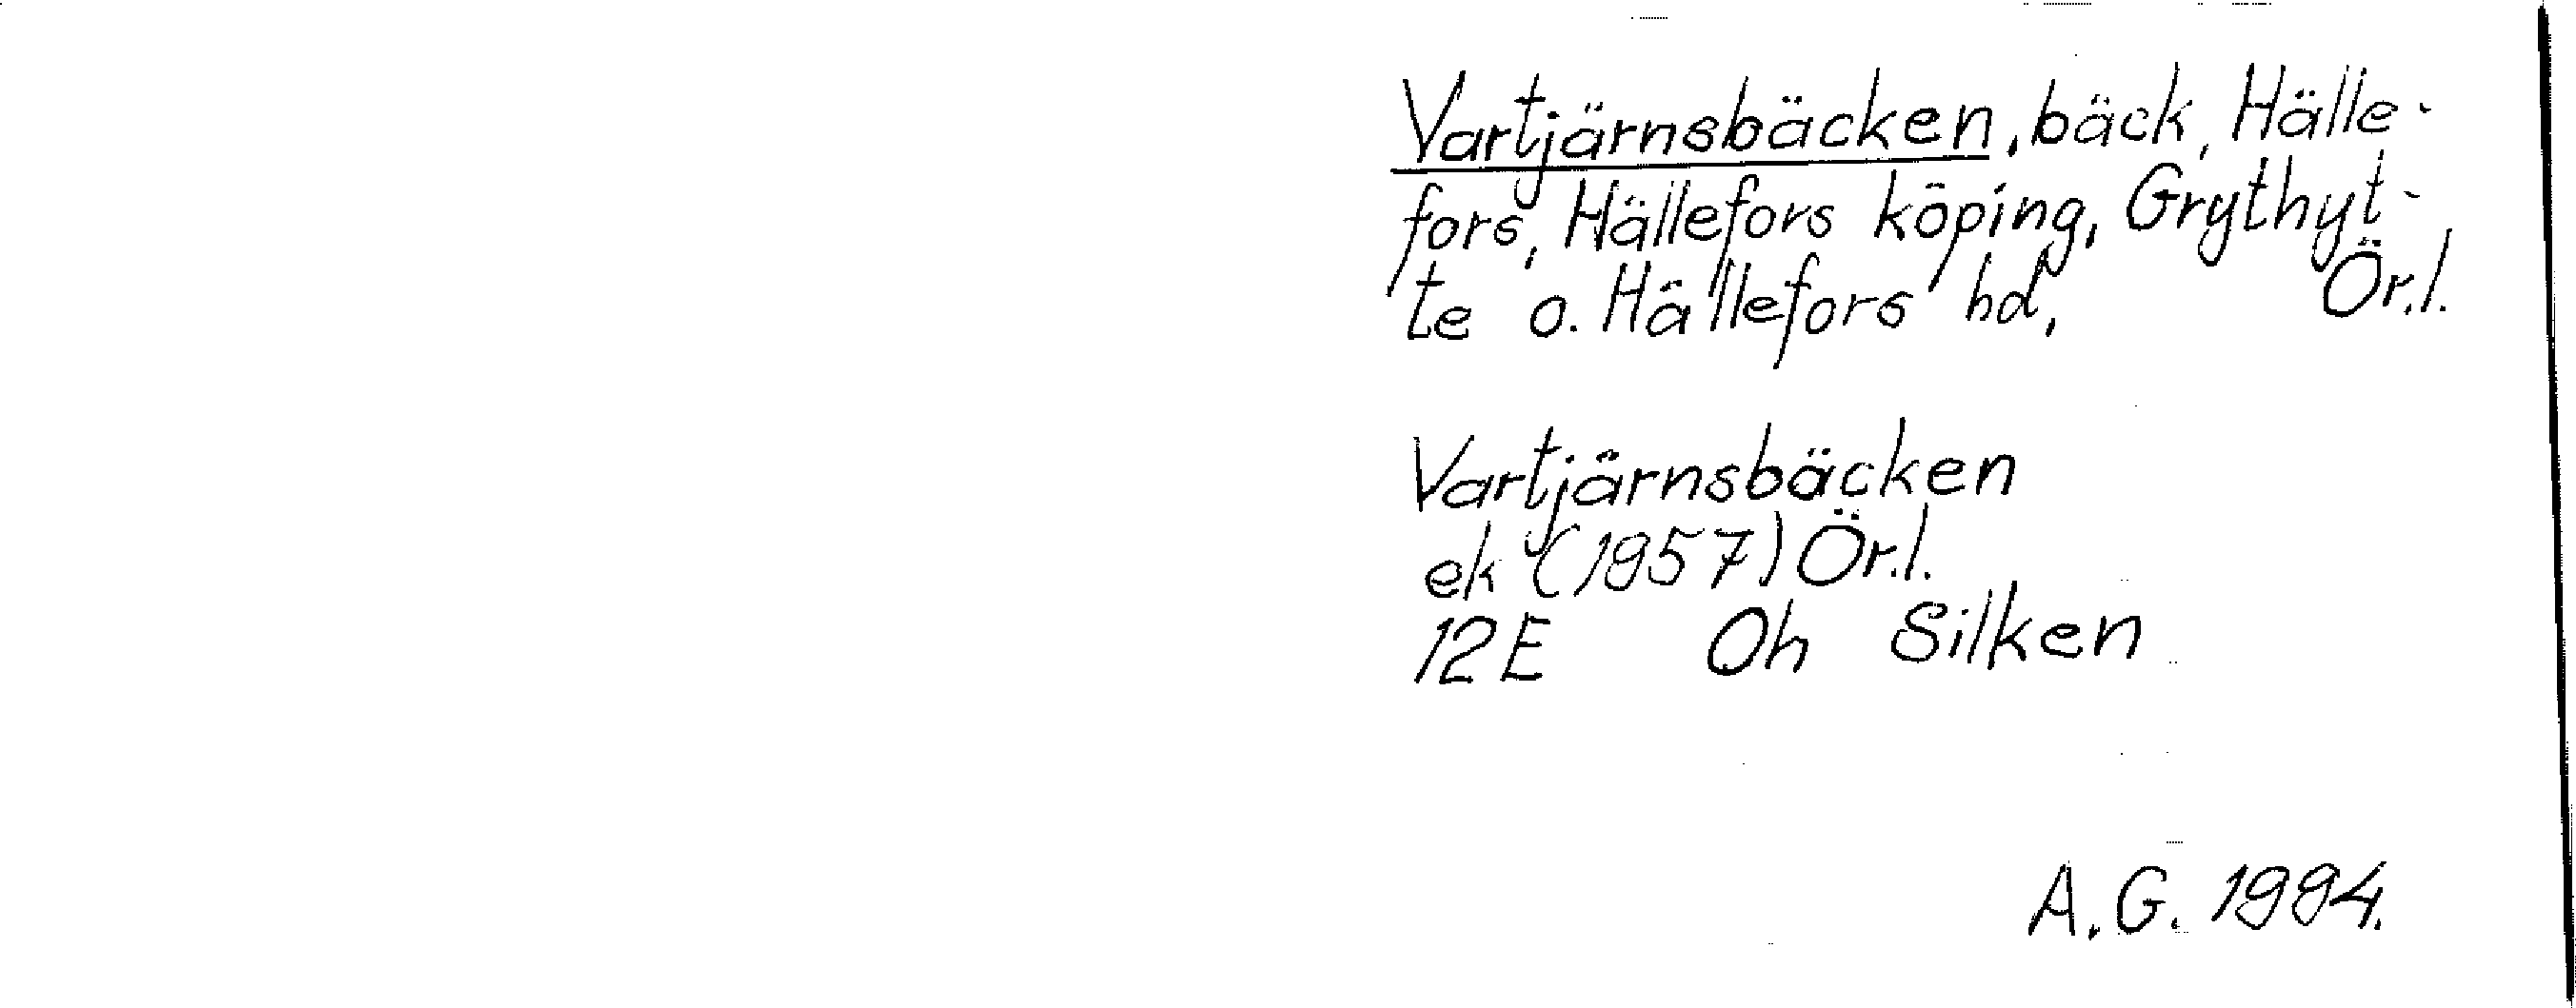 Vartjärnsbäcken, bäck, Hälle-
fors, Hällefors köping, Grythyt-
te o. Hällefors hd, Ör.l.
Vartjärnsbäcken
ek (1957) Ör.l.
12E Oh Silken
A.G. 1994.